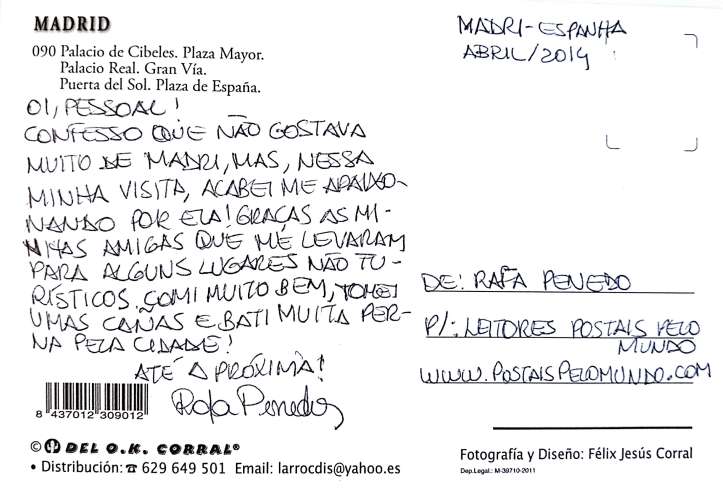 MADRID
090 Palacio de Cibeles. Plaza Mayor.
Palacio Real. Gran Vía.
Puerta del Sol. Plaza de España.
OI, PESSOAL!
CONFESSO QUE NÃO GOSTAVA
MUITO DE MADRI, MAS, NESSA
MINHA VISITA, ACABEI ME APAIXO-
NANDO POR ELA! GRAÇAS AS MI-
NHAS AMIGAS QUE ME LEVARAM
PARA ALGUNS LUGARES NÃO TU-
RÍSTICOS. COMI MUITO BEM, TOMEI
UMAS CAÑAS E BATI MUITA PER-
NA PELA CIDADE!
ATÉ A PRÓXIMA!
Rafa Penedo
8 437012 309012
© DEL O.K. CORRAL®
• Distribución: ☎ 629 649 501 Email: larrocdis@yahoo.es
MADRI-ESPANHA
ABRIL/2014
DE: RAFA PENEDO
P/: LEITORES POSTAIS PELO
MUNDO
WWW.POSTAISPELOMUNDO.COM
Fotografía y Diseño: Félix Jesús Corral
Dep.Legal.: M-39710-2011